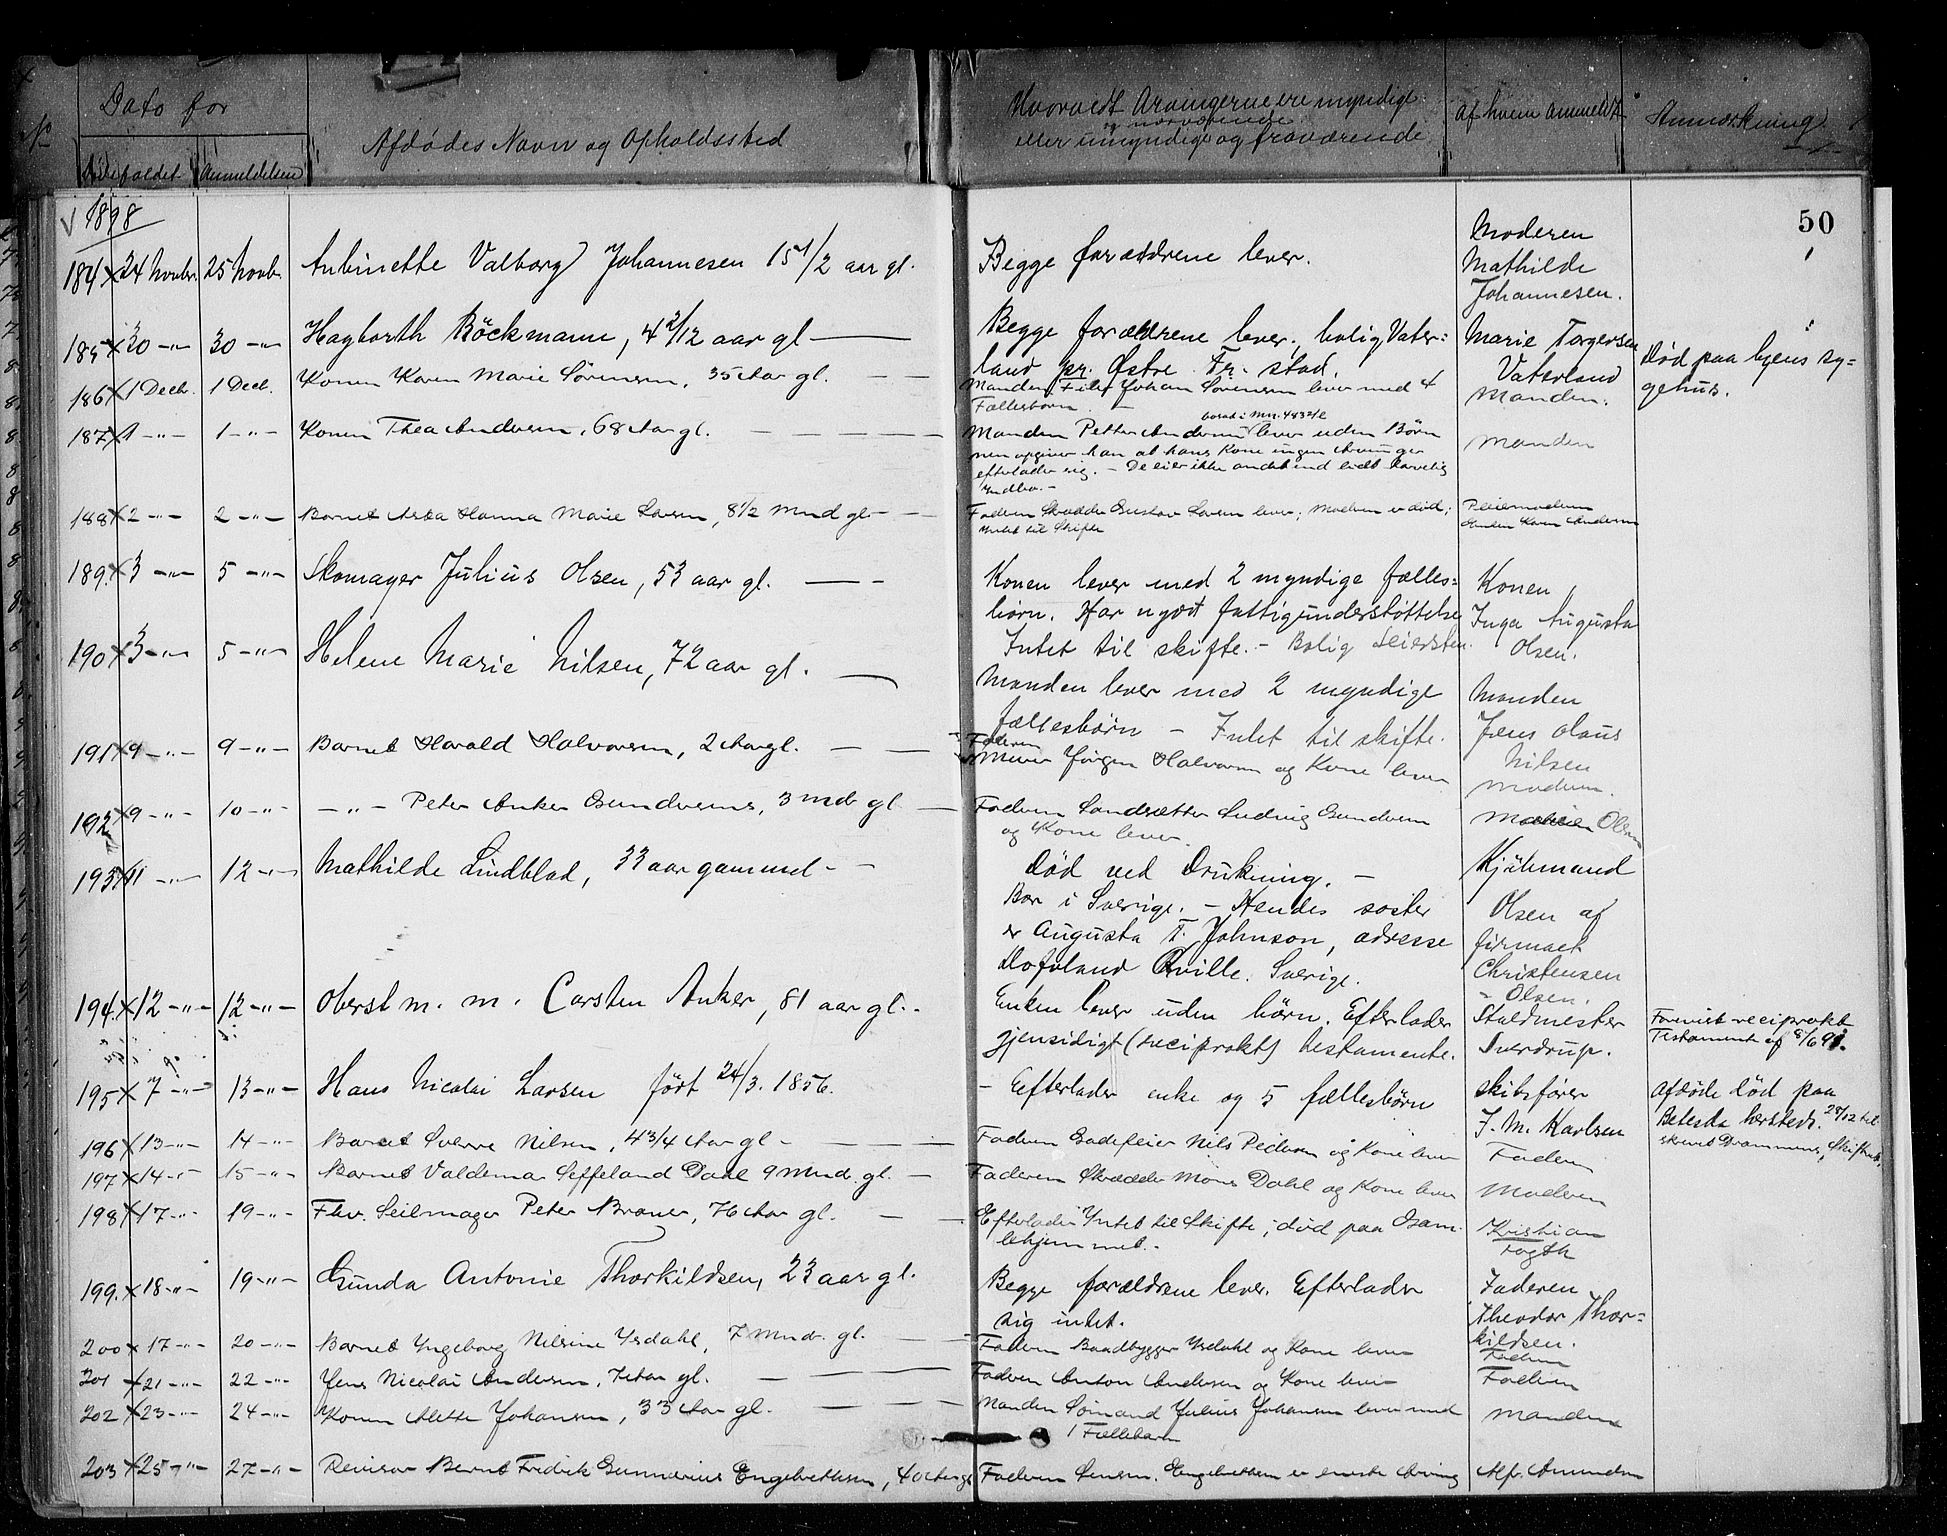 No
Dato for
Dødsfaldet Anmeldelsen
Afdødes Navn og Opholdssted
Hvorvidt Arvingerne ere myndige
og nærværende
eller umyndige og fraværende
Af hvem anmeldt
Anmærkning
50
1898
184 x 24 Novbr. 25 Novb. Antoinette Valborg Johannesen 15 1/2 aar gl. Begge forældrene lever. Moderen
Mathilde
Johannesen.
185 x 30 -"- 30 -"- Hagbarth Böckmann, 4 2/12 aar gl — Begge forældrene lever, bolig Vater= Marie Torgersen
land pr. Østre Fr. stad. Vaterland Død paa byens sy=
gehus.
186 x 1 Decbr. 1 Decb. Konen Karen Marie Sörensen, 35 Aar gl. — — Manden Johan Sørensen lever med 4 Manden.
Fællesbørn
187 x 1 -"- 1 -"- Konen Thea Andersen, 68 Aar gl. — Manden Petter Andersen lever uden Børn Manden
boed i Mn. 483
men opgiver han at hans Kone ingen Arvinger
efterlader sig. - De eier ikke andet end lidt
Indbo. -
188 x 2 -"- 2 -"- Barnet Asta Hanna Marie Larsen, 8 1/2 Mnd gl — Faderen Skrædder Gustav Larsen lever; Moderen er død; Pleiemoderen
Intet til Skifte Enken Karen Andersen
189. x 3 -"- 5 -"- Skomager Julius Olsen, 53 aar gl. — Konen lever med 2 myndige fælles= Konen
børn. Har nydt fattigunderstøttelse Inga Augusta
Intet til skifte. - Bolig Seiersten. Olsen.
190 x 3 -"- 5 -"- Helene Marie Nilsen, 72 aar gl. — Manden lever med 2 myndige Manden
fællesbörn - Intet til skifte. Jens Olaus
Nilsen
191 x 9 -"- 9 -"- Barnet Harald Halvorsen, 2 Aar gl. — Faderen
Murer Jörgen Halvorsen og Kone lever Moderen.
192 x 9 -"- 10 -"- -"- Peter Anker Gundersen, 3 Mdr gl — Faderen Ludvig Gundersen Olsen
og Kone lever.
193 x 11 -"- 12 -"- Mathilde Lindblad, 33 aar gammel - Död ved Drukning. - Kjöbmand
Bor i Sverige. - Hendes söster Olsen af
er Augusta T. Johnson, adresse firmaet
Sverige. Christensen
- Olsen.
194 x 12 -"- 12 -"- Oberst m. m. Carsten Anker, 81 aar gl. - Enken lever uden börn. Efterlader Staldmester
gjensidigt (reciprokt) testamente. Sverdrup. Forevist reciprokt
Testament af 8/6 91.
195 x 7 -"- 13 -"- Hans Nicolai Larsen født 24/3. 1856. - Efterlader enke og 5 fællesbörn Skibsfører
J. M. Karlsen Afdøde död paa
196 x 13 -"- 14 -"- Barnet Sverre Nilsen, 4 3/4 Aar gl — Faderen Gadefeier Nils Pedersen og Kone lever Faderen
197 x 14 -"- 15 -"- Barnet Valdemar Seffeland Dahl 9 Mnd. gl. — Faderen Skrædder Mons Dahl og Kone lever Moderen
198 x 17 -"- 19 -"- Fhv. Seilmager Peter Braner, 76 Aar gl. — Efterlader Intet til Skifte, død paa Gam= Kristian
lehjemmet. - Fogth
199. x 18 -"- 19 -"- Gunda Antonie Thorkildsen, 23 aar gl. Begge forældrene lever. Efterlader Faderen
sig intet. Theodor Thor=
kildsen.
200 x 17 -"- 20 -"- Barnet Ingeborg Nilsine Isdahl, 7 Mndr. gl. — Faderen Baadbygger Isdahl og Kone lever Faderen
201 x 21 -"- 22 -"- Jens Nicolai Andersen, 7 Aar gl. — Faderen Anton Andersen og Kone lever Faderen
202 x 23 -"- 24 -"- Konen Alette Johansen, 33 Aar gl. — Manden Sømand Julius Johansen lever med Manden
1 Fællesbarn
203 x 25 -"- 27 -"- Revisor Bernt Fredrik Gunnerius Engebrethsen, 40 Aar gl Faderen Engebrethsen er eneste Arving Alf. Amundsen